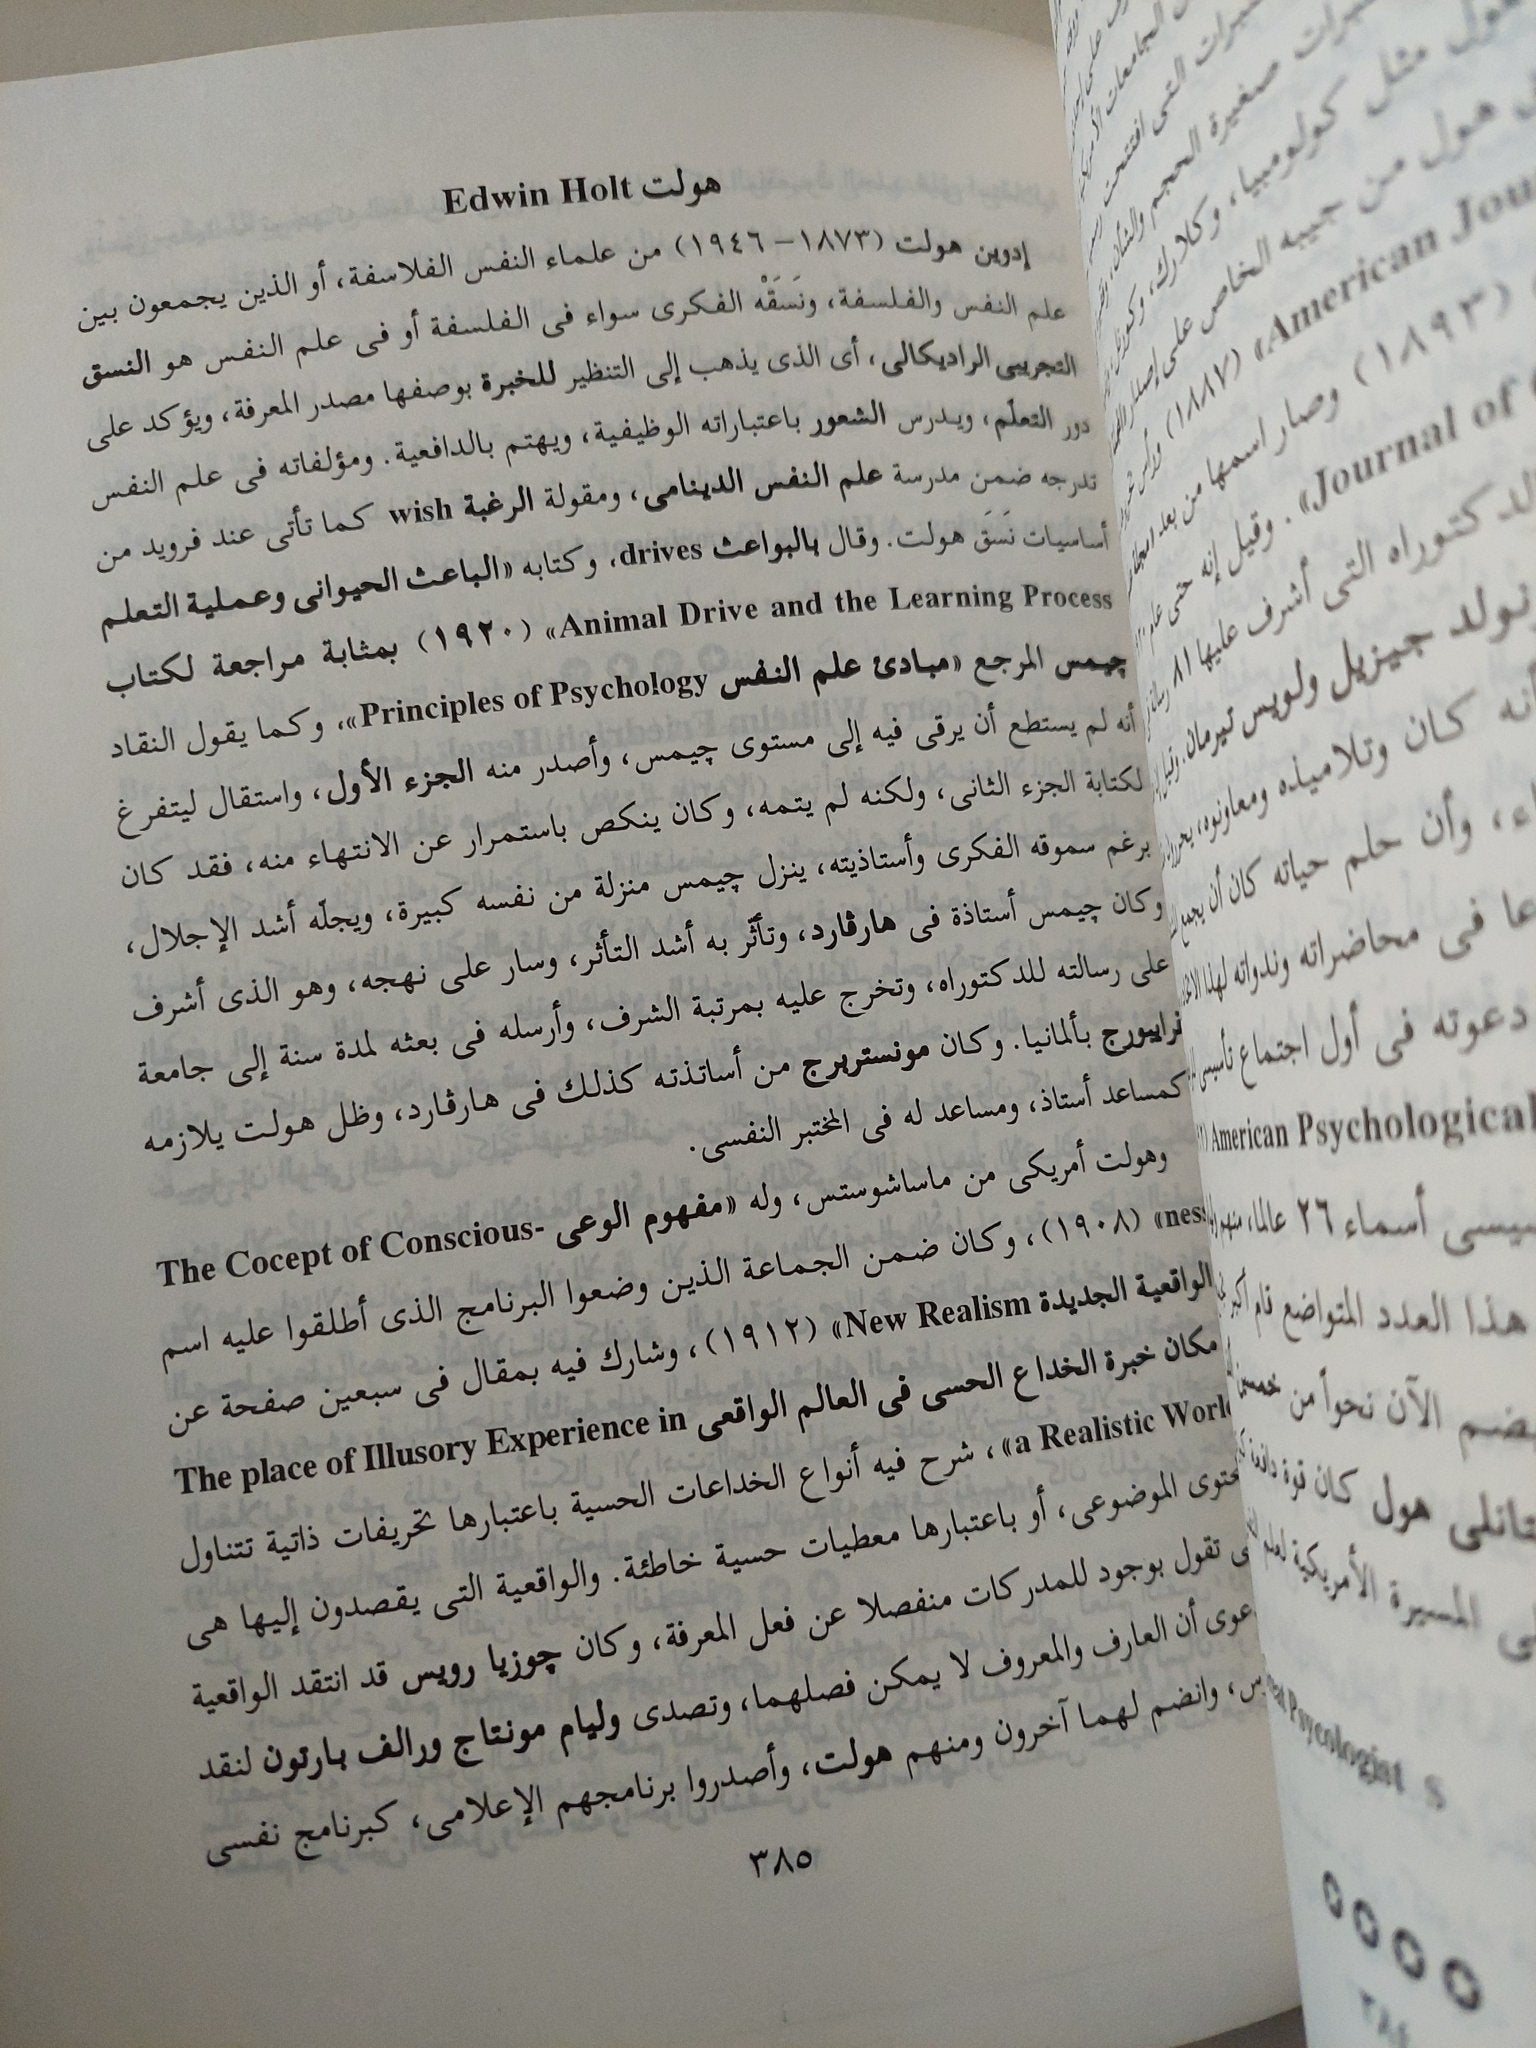 هولت Edwin Holt
إدوين هولت (١٨٧٣– ١٩٤٦) من علماء النفس الفلاسفة، أو الذين يجمعون بين
علم النفس والفلسفة، ونَسَقْه الفكرى سواء فى الفلسفة أو فى علم النفس هو النسق
التجريبى الراديكالى، أى الذى يذهب إلى التنظير للخبرة بوصفها مصدر المعرفة، ويؤكد على
دور التعلّم، ويدرس الشعور باعتباراته الوظيفية، ويهتم بالدافعية. ومؤلفاته فى علم النفس
تدرجه ضمن مدرسة علم النفس الدينامى، ومقولة الرغبة wish كما تأتى عند فرويد من
أساسيات نَسَق هولت. وقال بالبواعث drives، وكتابه «الباعث الحيوانى وعملية التعلم
Animal Drive and the Learning Process» (١٩٢٠) بمثابة مراجعة لكتاب
چيمس المرجع «مبادئ علم النفس Principles of Psychology»، وكما يقول النقاد
أنه لم يستطع أن يرقى فيه إلى مستوى چيمس، وأصدر منه الجزء الأول، واستقال ليتفرغ
لكتابة الجزء الثانى، ولكنه لم يتمه، وكان ينكص باستمرار عن الانتهاء منه، فقد كان
برغم سموقه الفكرى وأستاذيته، ينزل چيمس منزلة من نفسه كبيرة، ويجلّه أشد الإجلال،
وكان چيمس أستاذة فى هارڤارد، وتأثّر به أشد التأثر، وسار على نهجه، وهو الذى أشرف
على رسالته للدكتوراه، وتخرج عليه بمرتبة الشرف، وأرسله فى بعثه لمدة سنة إلى جامعة
فرايبورج بألمانيا. وكان مونستربرج من أساتذته كذلك فى هارڤارد، وظل هولت يلازمه
كمساعد أستاذ، ومساعد له فى المختبر النفسى.
وهولت أمريكى من ماساشوستس، وله «مفهوم الوعى The Cocept of Conscious-
ness» (١٩٠٨)، وكان ضمن الجماعة الذين وضعوا البرنامج الذى أطلقوا عليه اسم
الواقعية الجديدة New Realism» (١٩١٢)، وشارك فيه بمقال فى سبعين صفحة عن
مكان خبرة الخداع الحسى فى العالم الواقعى The place of Illusory Experience in
a Realistic World»، شرح فيه أنواع الخداعات الحسية باعتبارها تحريفات ذاتية تتناول
الموضوعى، أو باعتبارها معطيات حسية خاطئة. والواقعية التى يقصدون إليها هى
تقول بوجود للمدركات منفصلا عن فعل المعرفة، وكان چوزيا رويس قد انتقد الواقعية
أن العارف والمعروف لا يمكن فصلهما، وتصدى وليام مونتاج ورالف بارتون لنقد
وانضم لهما آخرون ومنهم هولت، وأصدروا برنامجهم الإعلامى، كبرنامج نفسى
٣٨٥
الجامعات
التى افتتحت
صغيرة الحجم والشأن
هول مثل كولومبيا، وكلارك،
هول من جيبه الخاص على إصدار
American Jour» (١٨٨٧)
(١٨٩٣) وصار اسمها من بعد
Journal of». وقيل إنه حتى
الدكتوراه التى أشرف عليها ٨١
جيزيل ولويس تيرمان.
كان وتلاميذه ومعاونوه،
وأن حلم حياته كان أن يجمع
فى محاضراته وندواته لهذا
دعوته فى أول اجتماع
American Psychological
أسماء ٢٦ عالما، منهم
هذا العدد المتواضع قام أكبر
يضم الآن نحواً من
هول كان قوة
المسيرة الأمريكية